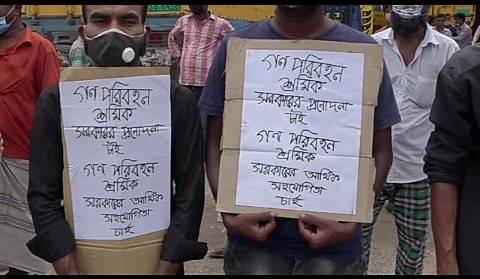 গণ পরিবহন
শ্রমিক
সরকারের প্রনোদনা
চাই
গণ পরিবহন
শ্রমিক
সরকারের আর্থিক
সহযোগিতা
চাই
গণ পরিবহন
শ্রমিক
সরকারের প্রনোদনা
চাই
গণ পরিবহন
শ্রমিক
সরকারের আর্থিক
সহযোগিতা
চাই